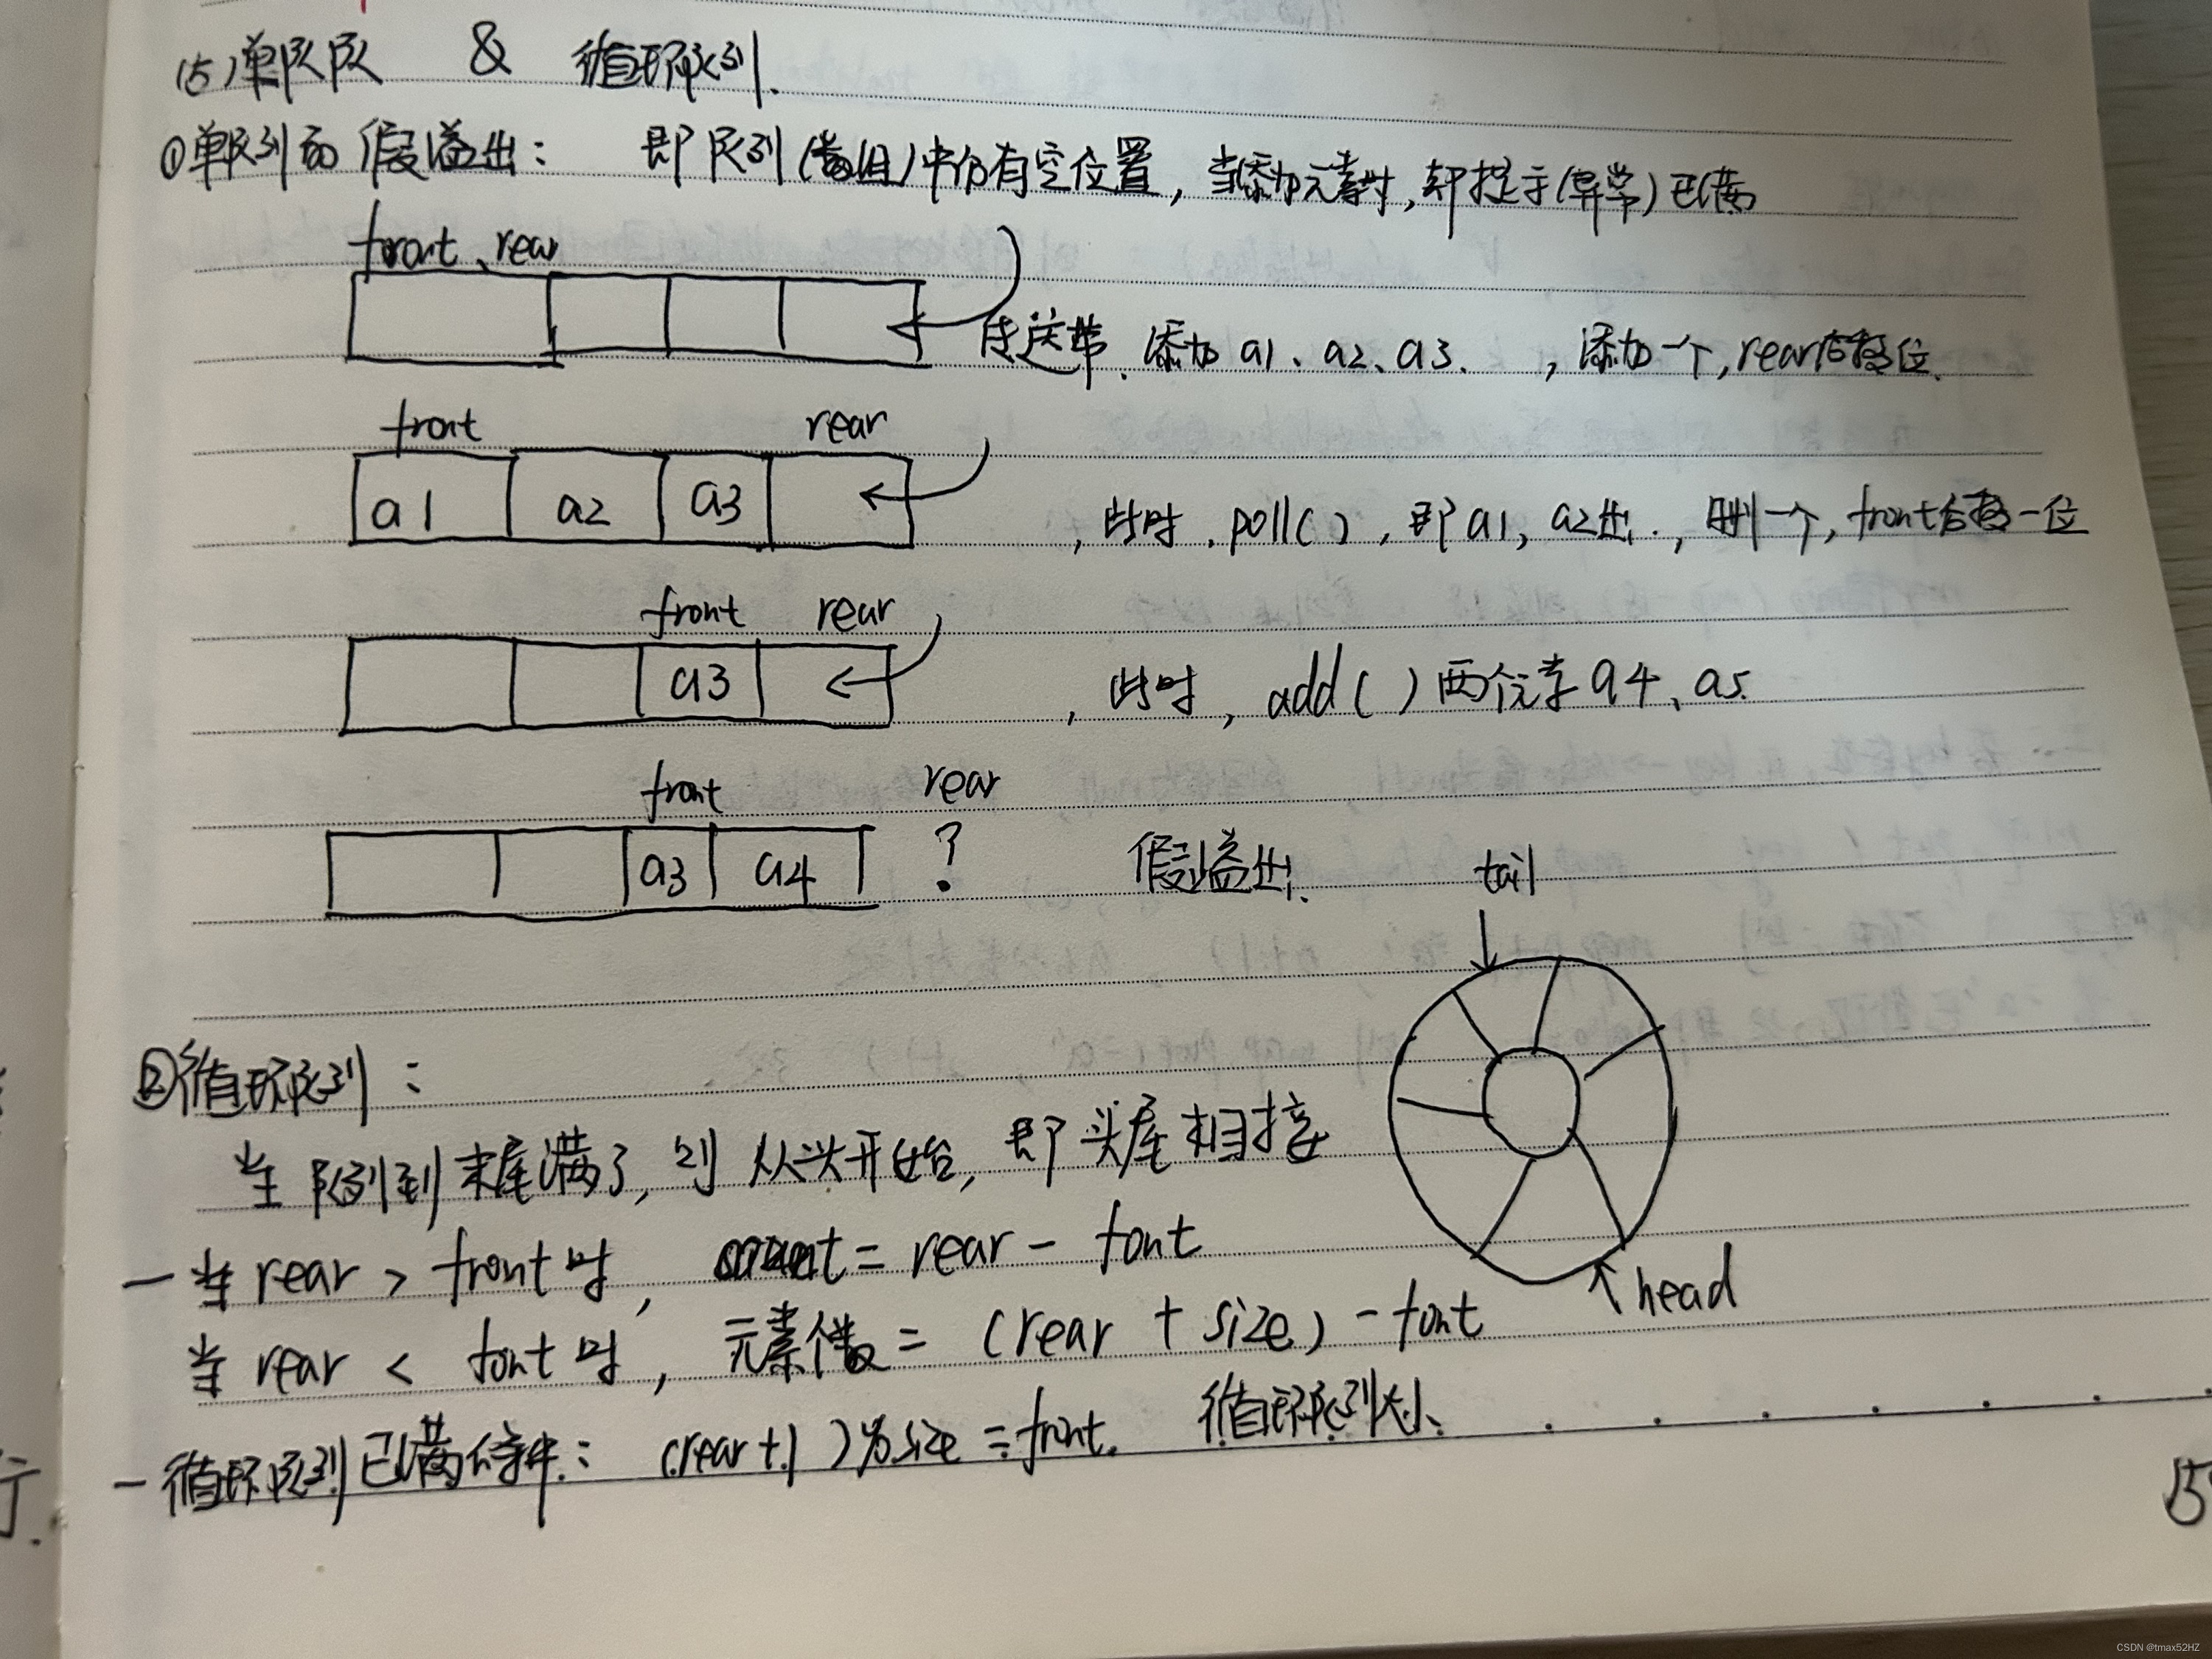 (5)单队队 & 循环队列.
①单队列的假溢出: 即队列(数组)中仍有空位置,当添加元素时,却提示(异常)已满
front、rear
传送带. 添加a1、a2、a3. ,添加一个,rear后移位.
front rear
a1 a2 a3 ,此时.poll(),即a1,a2出.,删一个,front后移一位
front rear
a3 ,此时,add()两个元素a4、a5.
front rear
a3 a4 ? 假溢出.
tail
②循环队列:
当队列到末尾满了,则从头开始,即头尾相接
一当rear>front时, = rear - font
head
当rear < font时,元素个数 = (rear + size) - font
一循环队列已满条件: (rear+1)%size = front. 循环队列大小
15
行.
CSDN @tmax52HZ